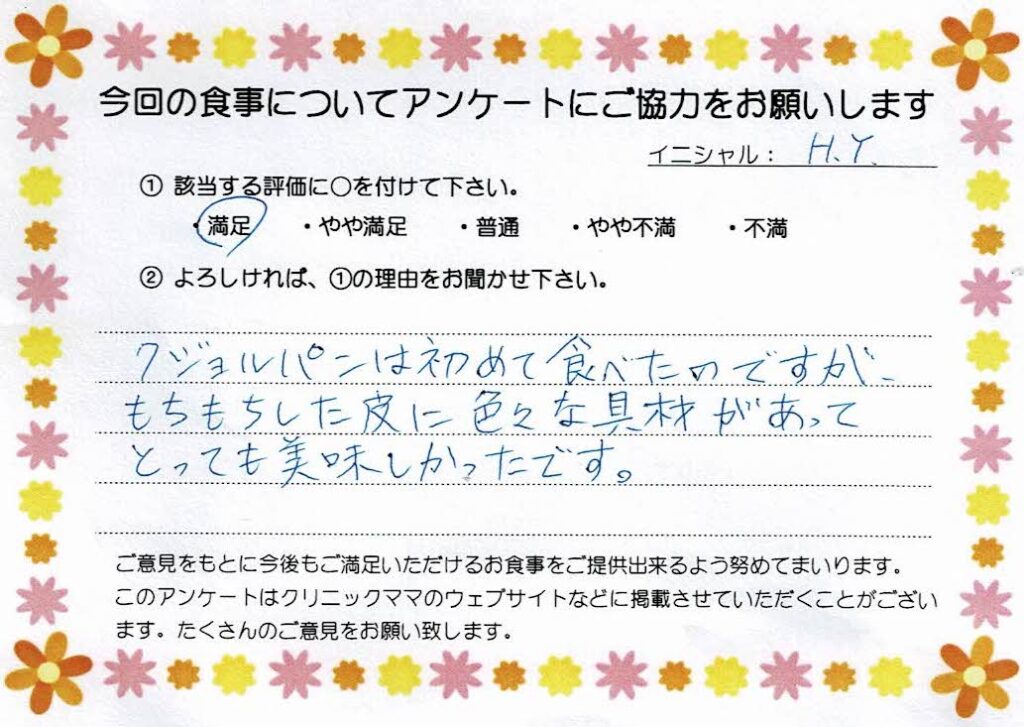 今回の食事についてアンケートにご協力をお願いします
イニシャル： H.Y.
① 該当する評価に○を付けて下さい。
・満足 ・やや満足 ・普通 ・やや不満 ・不満
② よろしければ、①の理由をお聞かせ下さい。
クジョルパンは初めて食べたのですが、
もちもちした皮に色々な具材があって
とっても美味しかったです。
ご意見をもとに今後もご満足いただけるお食事をご提供出来るよう努めてまいります。
このアンケートはクリニックママのウェブサイトなどに掲載させていただくことがござい
ます。たくさんのご意見をお願い致します。